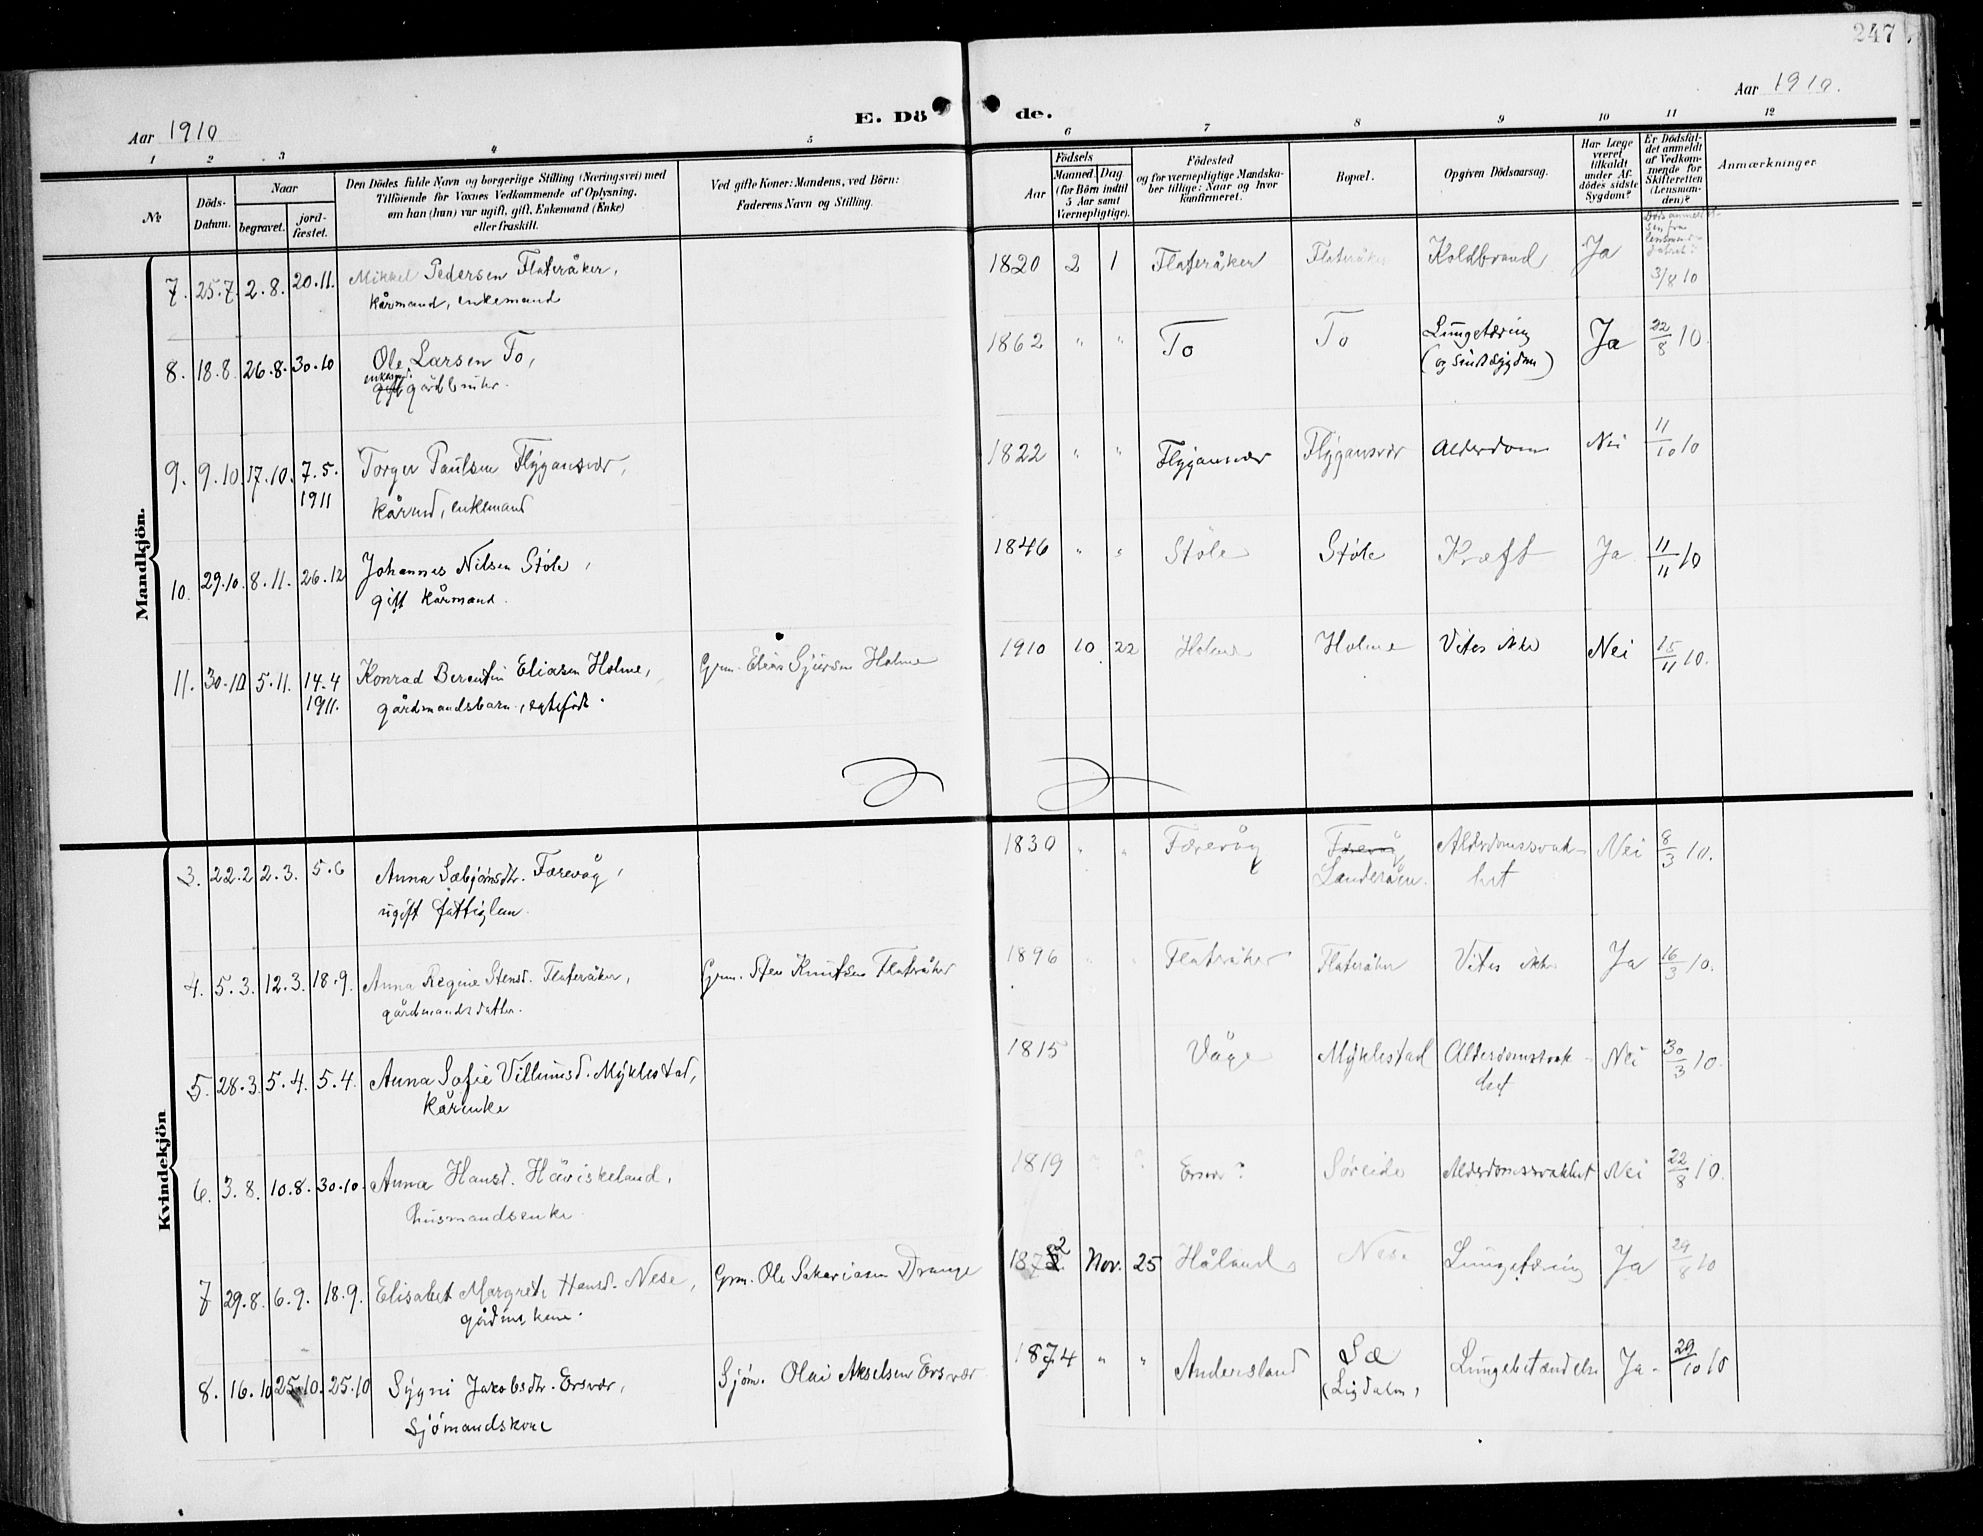 247
Aar 1910
E. Dö
de.
Aar 1910.
1 2 3 4 5 6 7 8 9 10 11 12
№
Döds-Datum.
Naar
begravet.
jord-fæstet.
Den Dödes fulde Navn og borgerlige Stilling (Næringsvei) med
Tilföiende for Voxnes Vedkommende af Oplysning,
om han (hun) var ugift, gift, Enkemand (Enke)
eller fraskilt.
Ved gifte Koner: Mandens, ved Börn:
Faderens Navn og Stilling.
Aar
Födsels
Maaned. Dag
(for Börn indtil
5 Aar samt
Værnepligtige).
Födested
og for værnepligtige Mandska-
ber tillige: Naar og hvor
konfirmeret.
Bopæl.
Opgiven Dödsaarsag.
Har Læge
været
tilkaldt
under Af-
dödes sidste
Sygdom?
Er Dödsfal-
det anmeldt
af Vedkom-
mende for
Skifteretten
(Lensman-
den)?
Anmærkninger
Mandkjön.
7. 25.7. 2.8. 20.11. Mikkel Pedersen Flateråker, 1820 2 1 Flateråker Flateråker Koldbrand Ja 3/8 10
kårmand, enkemand
8. 18.8. 26.8. 30.10 Ole Larsen To, 1862 " " To To Lungetæring Ja 22/8 10.
enkem. (og sindssygdom)
gift gårdbruker.
9. 9.10. 17.10. 7.5. Torger Paulsen Flygansvær, 1822 " " Flygansvær Flygansvær Alderdom Nei 11/10 10
1911
kårmd, enkemand
10. 29.10. 8.11. 26.12 Johannes Nilsen Støle, 1846 " " Støle Støle Kræft Ja 11/11 10
gift kårmand.
11. 30.10 5.11. 14.4 Konrad Berentin Eliasen Holme, Grm. Elias Sjursen Holme 1910 10 22 Holme Holme Vites ikke Nei 15/11 10.
1911. gårdmandsbarn, egtefødt.
Kvindekjön
3. 22.2 2.3. 5.6 Anna Sæbjørnsdtr. Færevåg, 1830 " " Færevåg Færevåg Alderdomssvak- Nei 8/3 10.
Landerøen. het
ugift fattiglem.
4. 5.3. 12.3. 18.9. Anna Regine Stensd. Flateråker, Grm. Sten Knutsen Flateråker 1896 " " Flateråker Flateråker Vites ikke Ja 16/3 10.
gårdmandsdatter.
5. 28.3. 5.4. 5.4. Anna Sofie Villumsd. Myklestad, 1815 Våge Myklestad Alderdomssvak- Nei 30/3 10.
kårenke het
6. 3.8. 10.8. 30.10. Anna Hansd. Håviskeland, 1819 " " Ersvær? Søreide Alderdomssvakhet Nei 22/8 10.
husmandsenke
7 29.8. 6.9. 18.9. Elisabet Margrete Hansd. Nese, Grm. Ole Sakariasen Drange 1872 Nov. 25 Håland Nese Lungetæring Ja 29/8 10
gårdmskone.
8. 16.10 25.10. 25.10 Sygni Jakobsdtr. Ersvær, Sjøm. Olai Akselsen Ersvær 1874 " " Andersland Sæ Lungebetændelse Ja 29/10 10
(Ligdalen)
sjømandskone